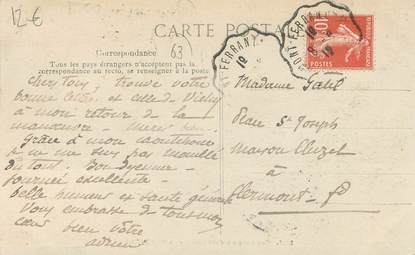 12 €
CARTE POSTALE
Correspondance
63
Tous les pays étrangers n'acceptent pas la
correspondance au recto, se renseigner à la poste
T-FERRAND
10
POSTES
Chers tous, trouve votre
bonne lettre et celle de Vichy
à mon retour de la
manœuvre - Merci
grâce à mon caoutchouc
je ne me suis pas mouillé
du tout. Bon déjeuner -
journée excellente -
belle humeur et santé générale
Vous embrasse de tout mon
cœur bien votre
Madame
Place St Joseph
Maison
à
Clermont-Fd